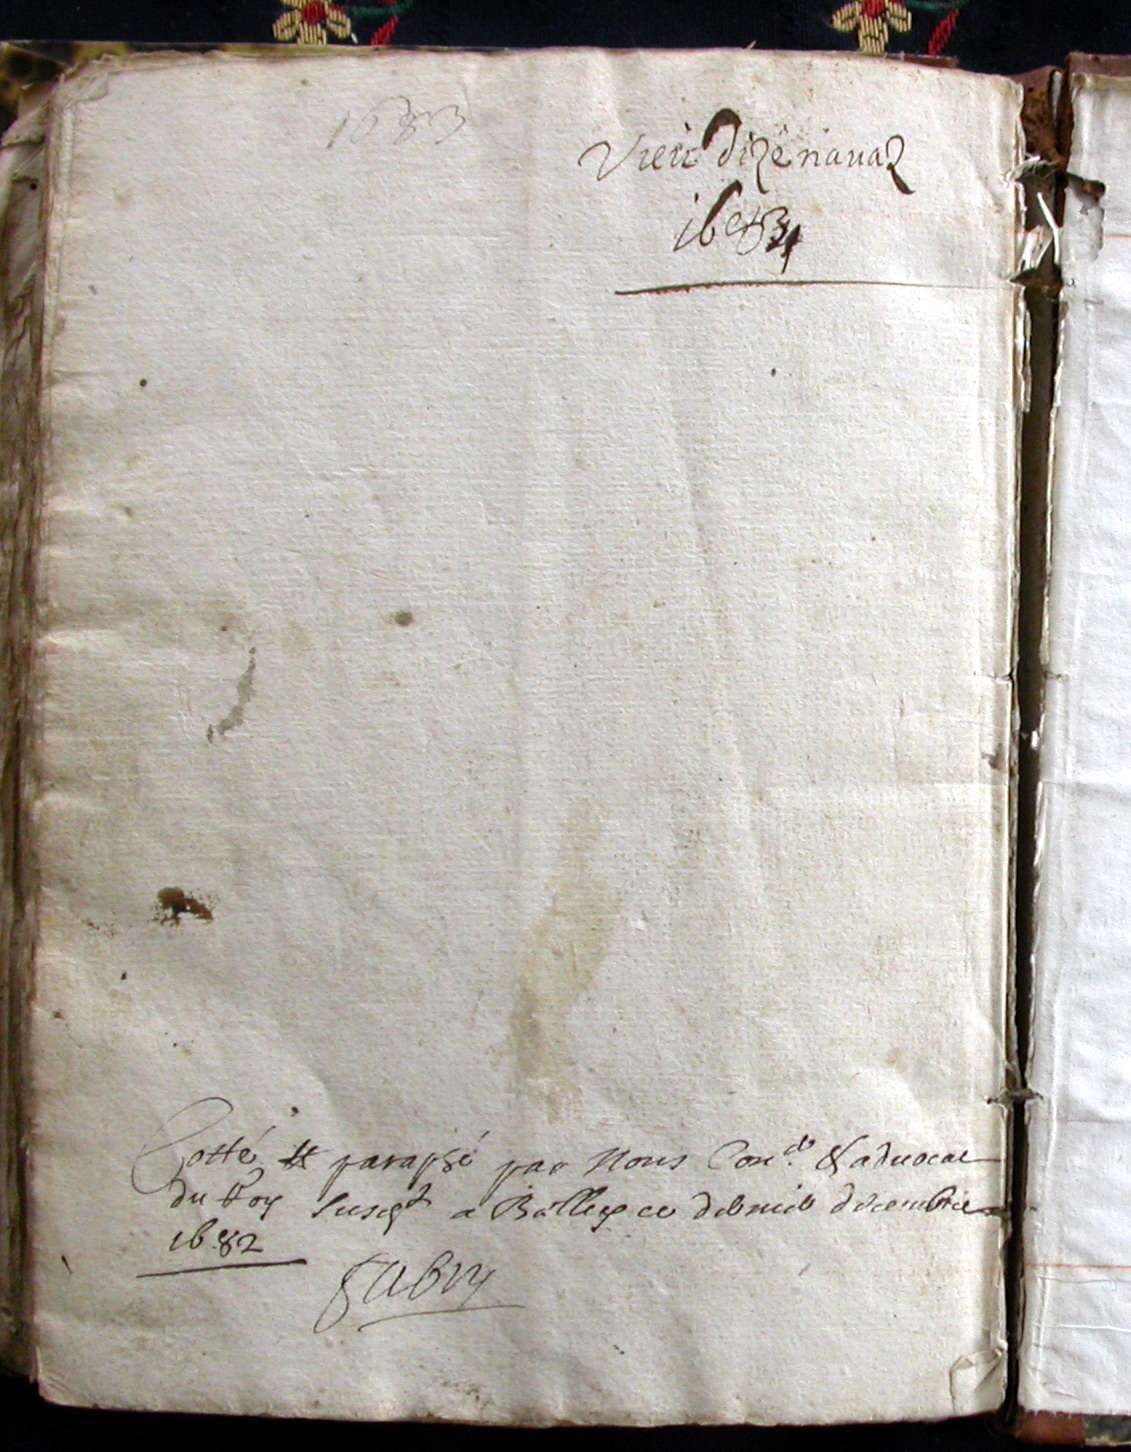 1683
Vieu dizenavaz
1683
Cotté & paraphé par Nous Con.er & advocat
du Roy susigt a Belley ce dernier décembre
1682
Fabry